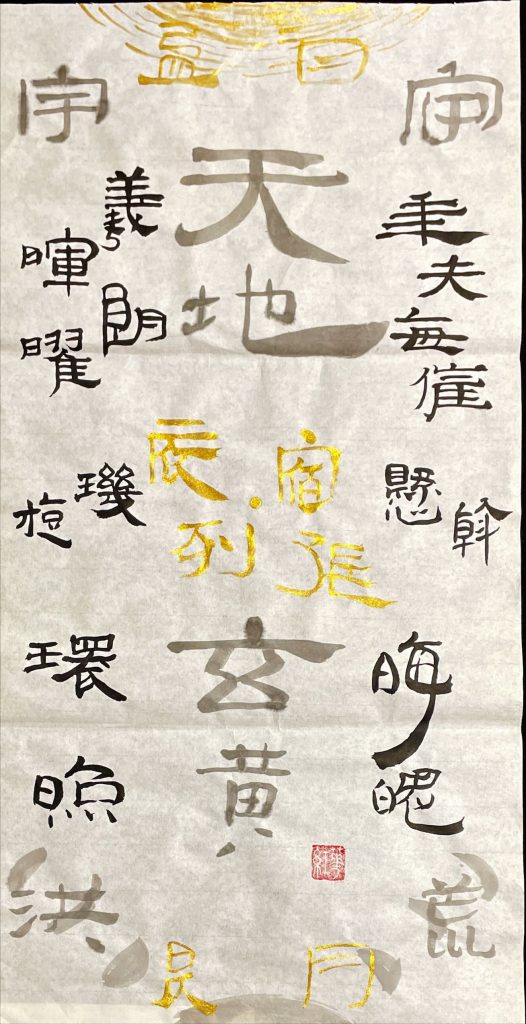 日盈
宙宇
天地
年矢每催
羲暉朗曜
辰宿列張
璇璣懸斡
玄黄
晦魄環照
洪荒
月昃